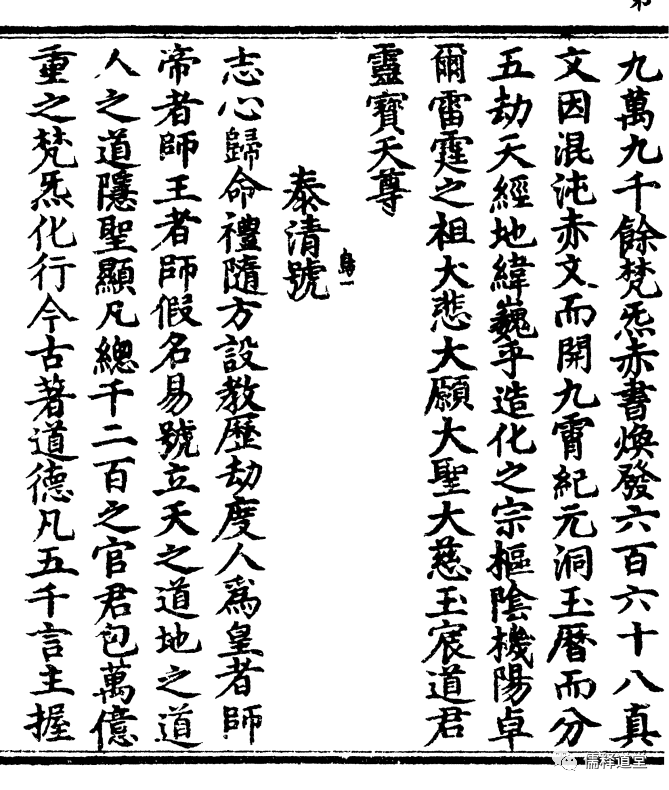 九萬九千餘梵炁赤書煥發六百六十八真
文因混沌赤文而開九霄紀元洞玉曆而分
五劫天經地緯巍乎造化之宗樞陰機陽卓
爾雷霆之祖大悲大願大聖大慈玉宸道君
靈寶天尊
泰清號
志心歸命禮隨方設教歷劫度人爲皇者師
帝者師王者師假名易號立天之道地之道
人之道隱聖顯凡總千二百之官君包萬億
重之梵炁化行今古著道德凡五千言主握
儒释道堂